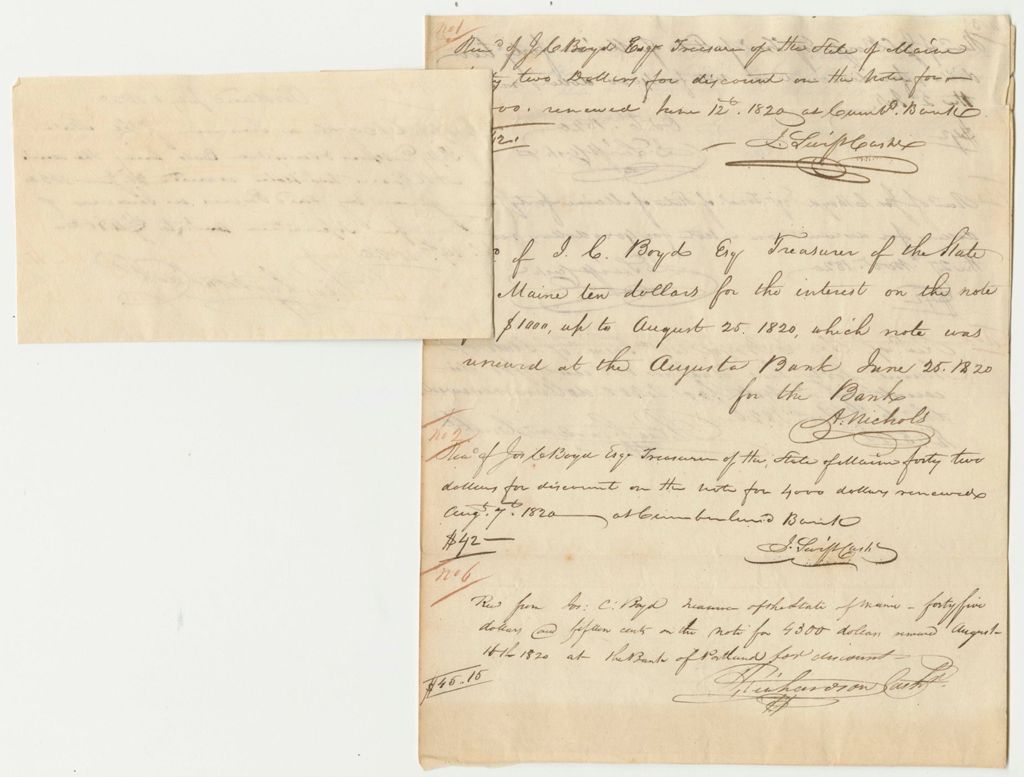 No 1
Recd of J C Boyd Esqr Treasurer of the State of Maine
two Dollars for discount on the Note for
00. renewed June 12th. 1820 at Cumbd. Bank
J. Swift Cashr
of J. C. Boyd Esq Treasurer of the State
Maine ten dollars for the interest on the note
$1000, up to August 25. 1820, which note was
renewd at the Augusta Bank June 25. 1820
for the Bank
A. Nichols
No 2
Recd of Jos C Boyd Esqr Treasurer of the State of Maine forty two
dollars for discount on the note for 4000 dollars renewed
Augt. 7th. 1820 at Cumberland Bank
$42— J. Swift Cashr
No 6
Rec from Jos: C. Boyd Treasurer of the State of Maine - forty five
dollars and fifteen cents on the note for 4300 dollars renewd August
16th 1820 at the Bank of Portland for discount
$45.15 Richardson Cashr.